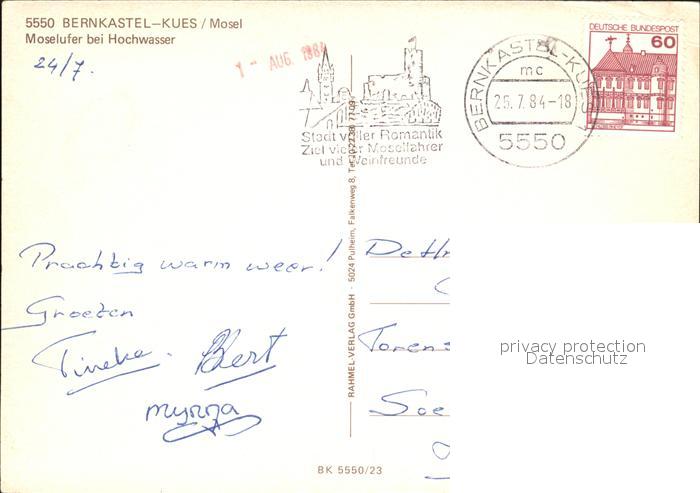 5550 BERNKASTEL–KUES / Mosel
Moselufer bei Hochwasser
24/7.
1 - AUG. 1984
Stadt voller Romantik
Ziel vieler Moselfahrer
und Weinfreunde
BERNKASTEL-KUES 1
mc
25.7.84-18
5550
DEUTSCHE BUNDESPOST
60
Prachtig warm weer!
Groeten
Tineke. Bert
RAHMEL-VERLAG GmbH · 5024 Pulheim, Falkenweg 8,
Toren
Soe
privacy protection
Datenschutz
BK 5550/23